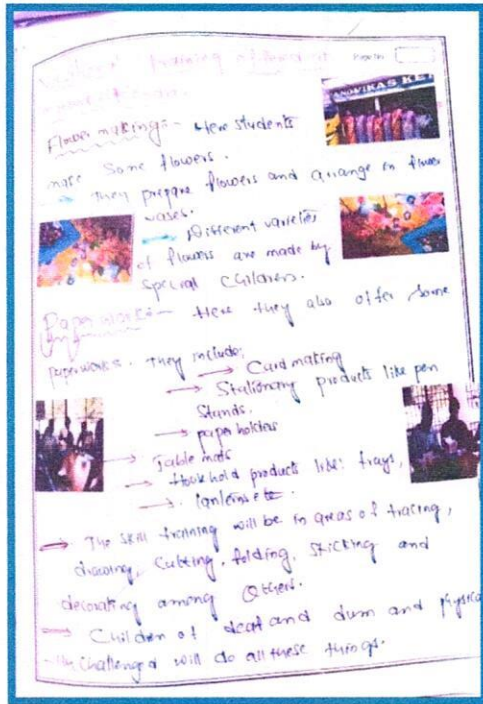 Page No.
training
ANOVIKAS KE
Flower making:- Here students
make some flowers.
They prepare flowers and arrange in flower
vases.
Different varieties
of flowers are made by
special children.
Paper works:- Here they also offer some
paperworks. They include;
→ Card making
→ Stationary products like pen
stands.
→ paper holders
→ Table mats
→ House hold products like: trays,
→ lanterns etc.
→ The skill training will be in areas of tracing,
drawing, cutting, folding, sticking and
decorating among others.
→ Children of deaf and dum and physica
-lly challenged will do all these things.